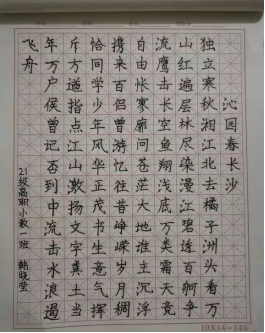 沁园春长沙
独立寒秋湘江北去橘子洲头看万
山红遍层林尽染漫江碧透百舸争
流鹰击长空鱼翔浅底万类霜天竞
自由怅寥廓问苍茫大地谁主沉浮
携来百侣曾游忆往昔峥嵘岁月稠
恰同学少年风华正茂书生意气挥
斥方遒指点江山激扬文字粪土当
年万户侯曾记否到中流击水浪遏
飞舟
21级高职小教一班 韩晓莹
10X14=140